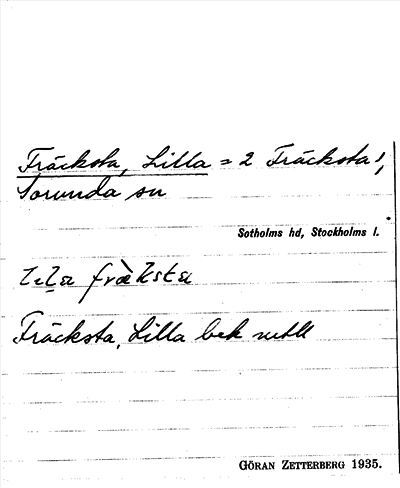 Fräcksta, Lilla = 2 Fräcksta¹,
Sorunda sn
Sotholms hd, Stockholms l.
fräksta
Fräcksta, Lilla bek
GÖRAN ZETTERBERG 1935.